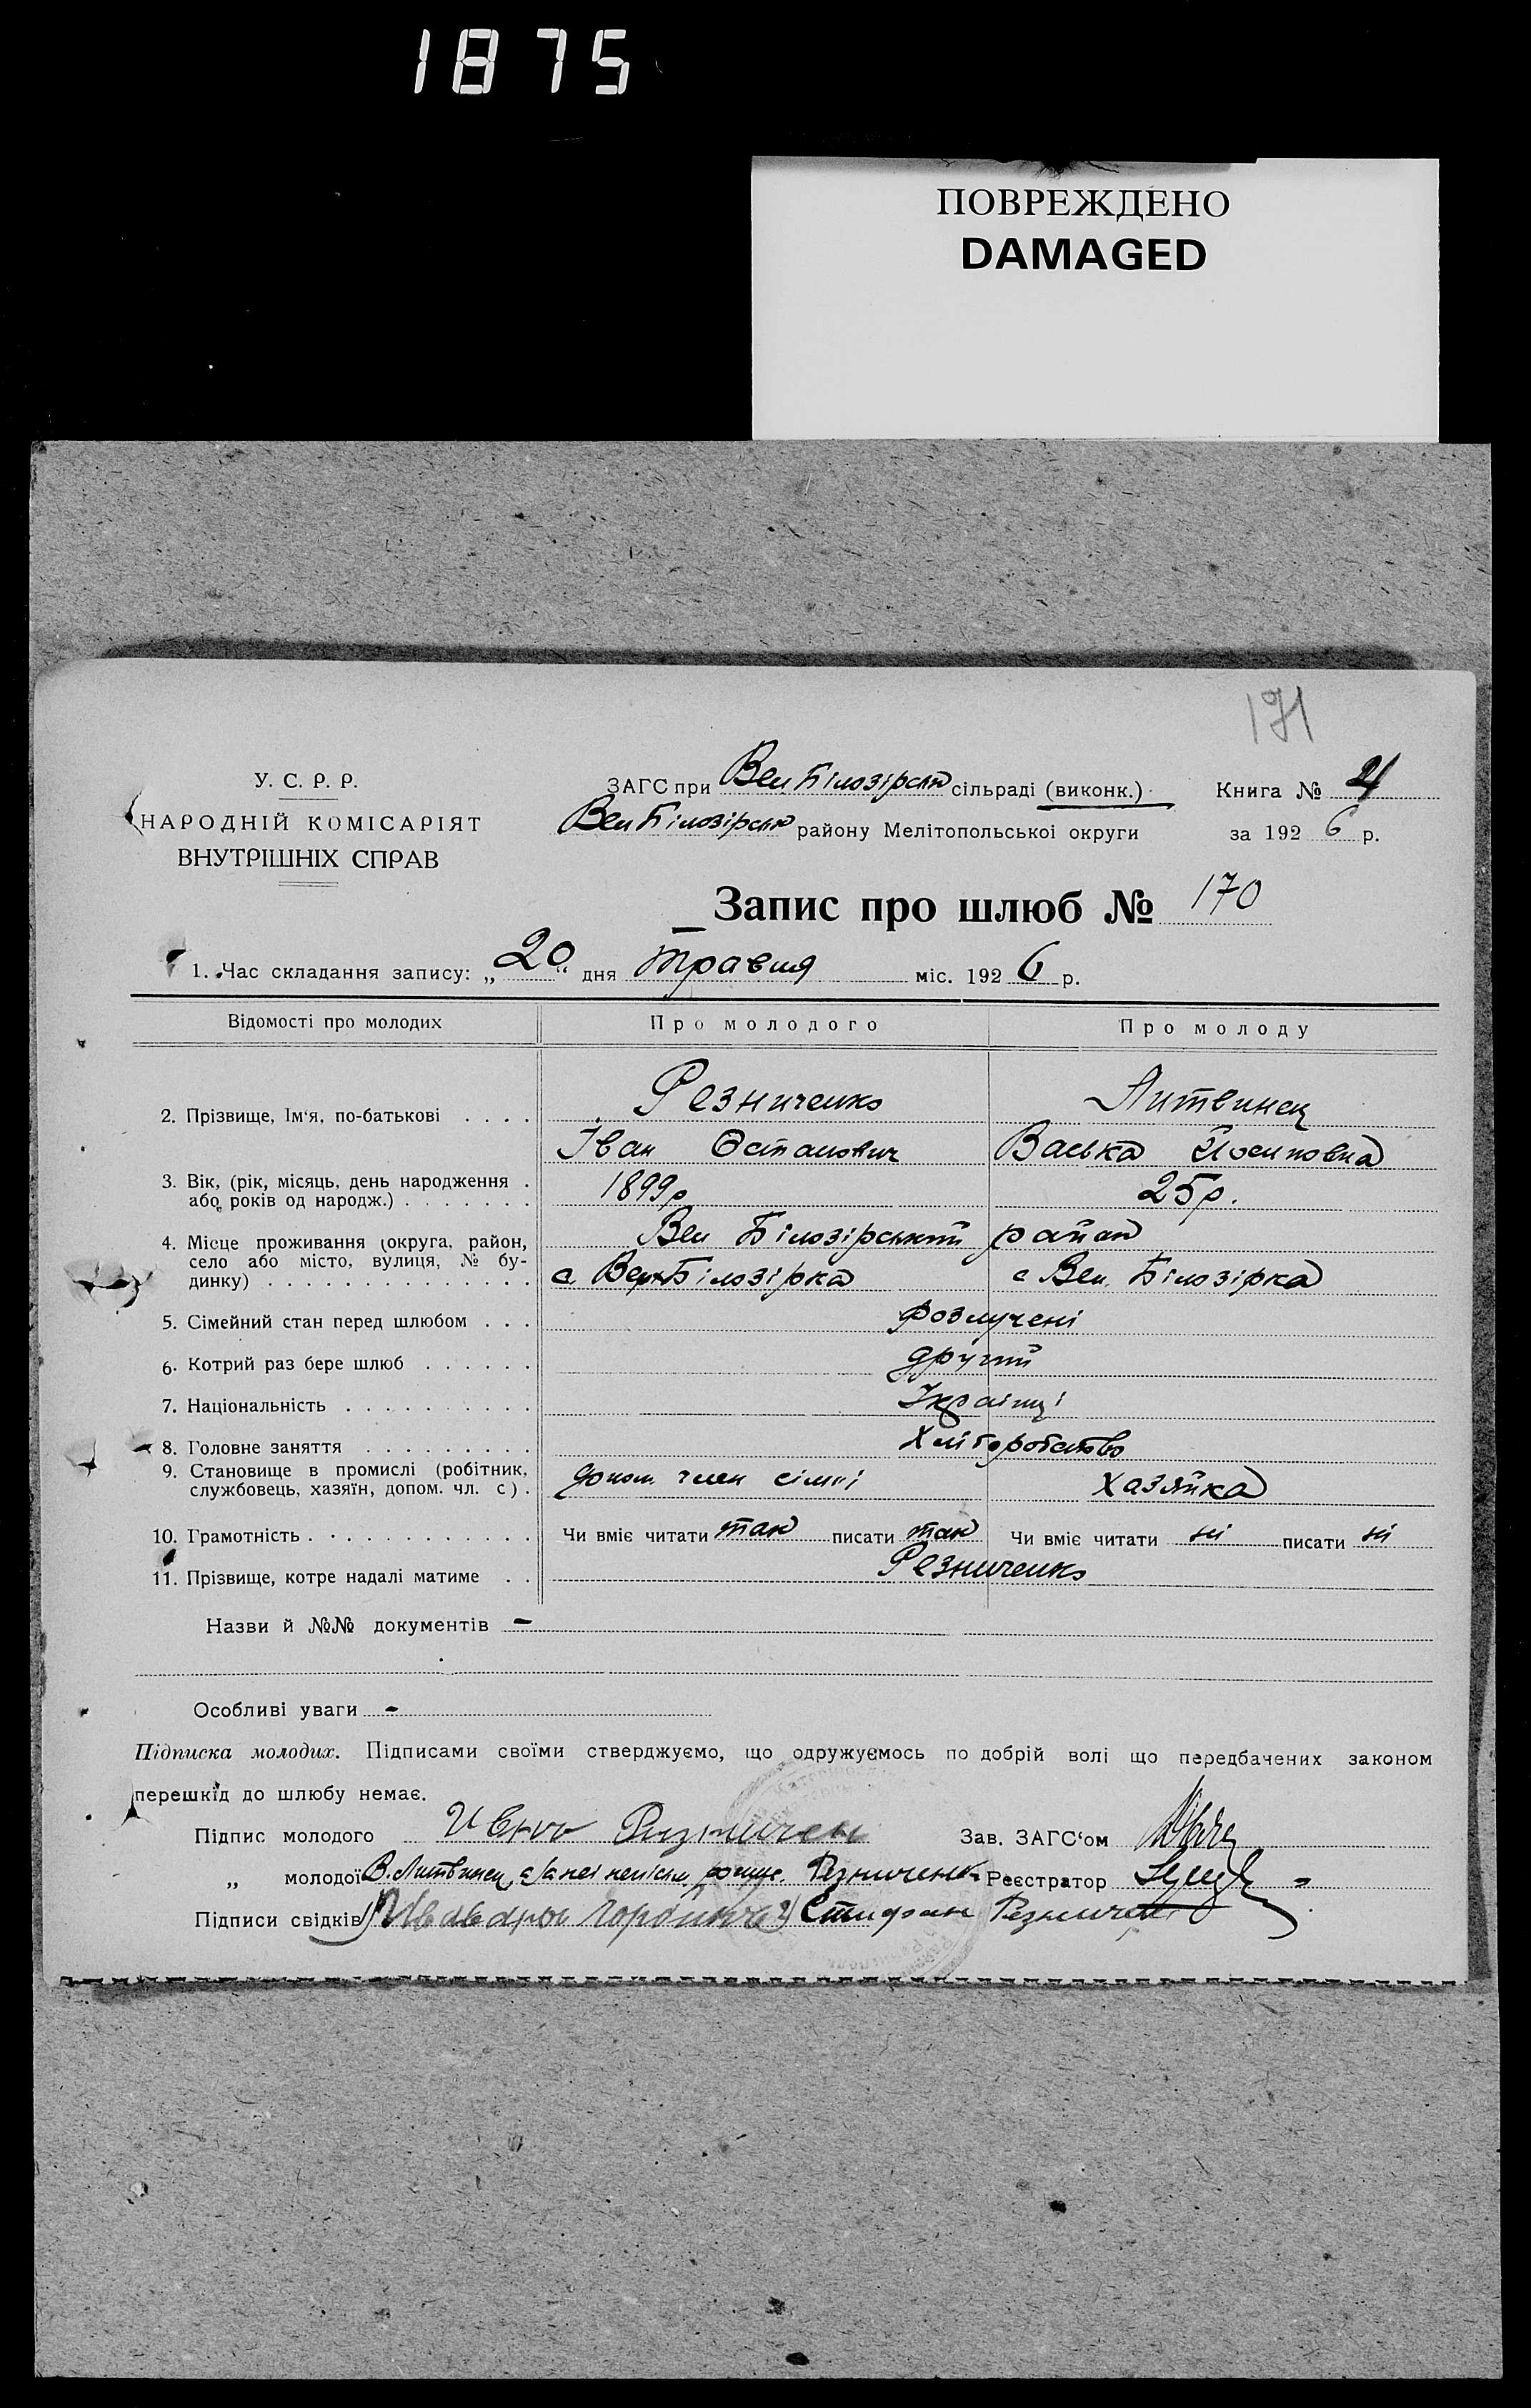 1875
ПОВРЕЖДЕНО
DAMAGED
171
У. С. Р. Р.
НАРОДНІЙ КОМІСАРІЯТ
ВНУТРІШНІХ СПРАВ
ЗАГС при Вел Білозірськ сільраді (виконк.)
Вел Білозірськ району Мелітопольської округи
Книга №
за 1926 р.
Запис про шлюб № 170
1. Час складання запису: „20“ дня Травня міс. 1926 р.
Відомості про молодих Про молодого Про молоду
2. Прізвище, Ім'я, по-батькові . . . . Резниченко Литвинец
Іван Остапович Васька Йосиповна
3. Вік, (рік, місяць, день народження .
або років од народж.) . . . . . . . 1899р 25р.
4. Місце проживання (округа, район,
село або місто, вулиця, № бу-
динку) . . . . . . . . . . . . . .
Вел Білозірський район
с. Вер Білозірка с Вел. Білозірка
5. Сімейний стан перед шлюбом . . . розлучені
6. Котрий раз бере шлюб . . . . . . другий
7. Національність . . . . . . . . . . Українці
8. Головне заняття . . . . . . . . . Хліборобство
9. Становище в промислі (робітник,
службовець, хазяїн, допом. чл. с) . допом. член сімьї Хазяйка
10. Грамотність . . . . . . . . . . . . Чи вміє читати так писати так Чи вміє читати ні писати ні
11. Прізвище, котре надалі матиме . . Резниченко
Назви й №№ документів -
Особливі уваги -
Підписка молодих. Підписами своїми стверджуємо, що одружуємось по добрій волі що передбачених законом
перешкід до шлюбу немає.
Підпис молодого Зав. ЗАГС'ом
„ молодої В. Литвинец, Резниченко Реєстратор
Підписи свідків 2) Стифан Резничен